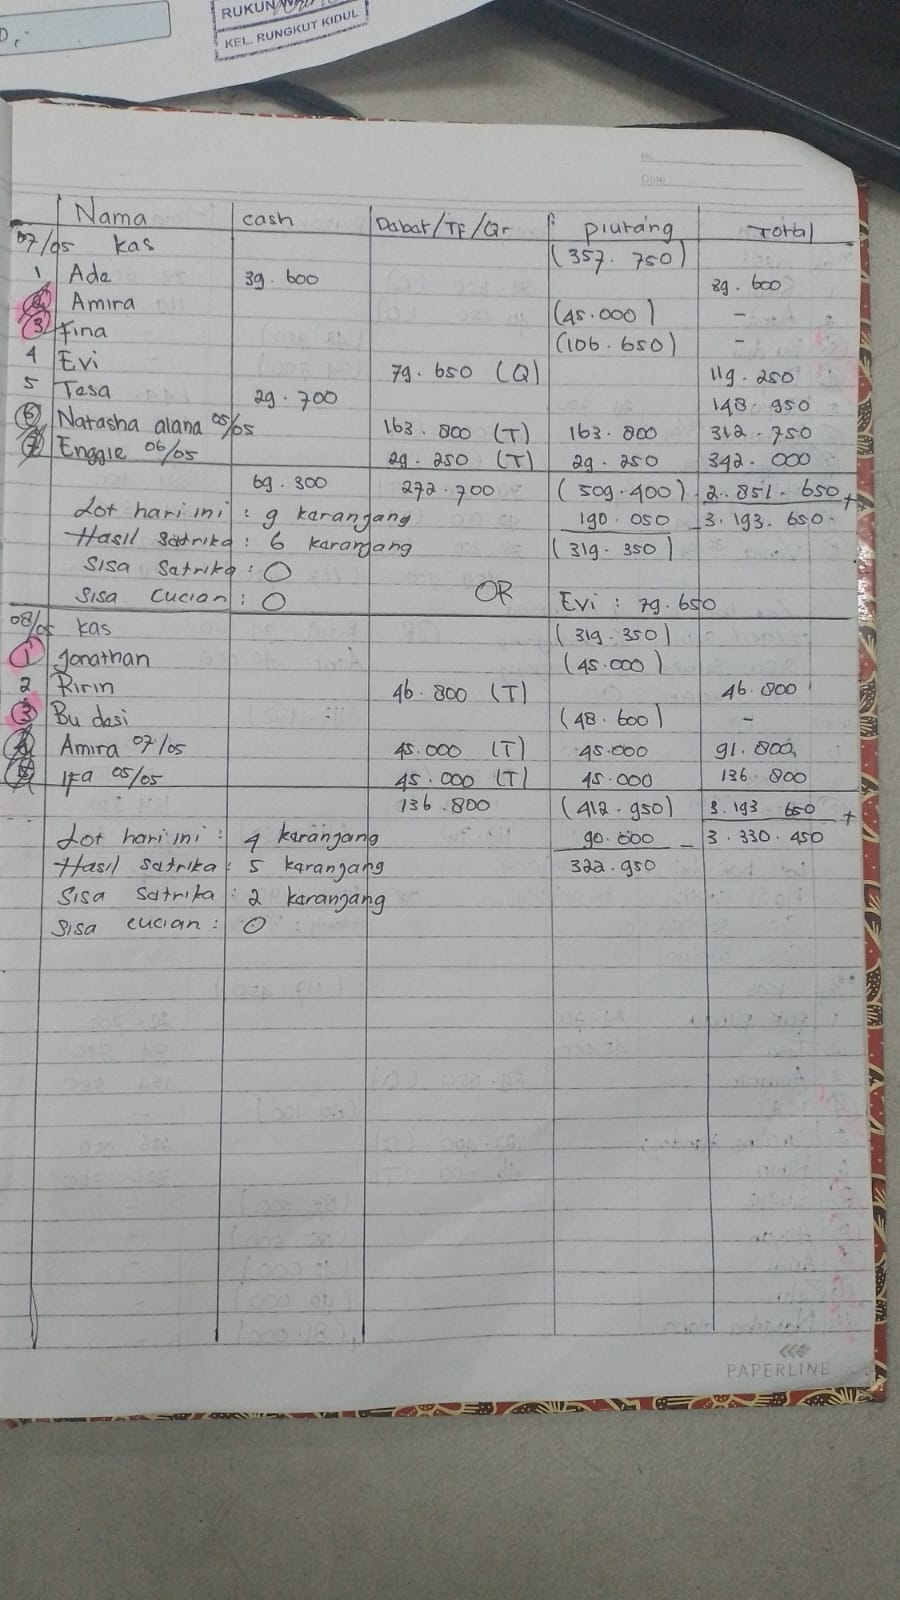 RUKUN
KEL. RUNGKUT KIDUL
No.
Date
Nama cash Dabat/TF/Qr piutang Total
07/05 kas (357.750)
1 Ade 39.600 39.600
2 Amira (45.000) -
3 Fina (106.650) -
4 Evi 79.650 (Q) 119.250
5 Tesa 29.700 148.950
6 Natasha alana 05/05 163.800 (T) 163.800 312.750
7 Enggie 06/05 29.250 (T) 29.250 342.000
69.300 272.700 (509.400) 2.851.650 +
Lot hari ini : 9 karanjang 190.050 - 3.193.650
Hasil Satrika : 6 karanjang (319.350)
Sisa Satrika : 0
Sisa cucian : 0 QR Evi : 79.650
08/05 kas (319.350)
1 Jonathan (45.000)
2 Ririn 46.800 (T) 46.800
3 Bu desi (48.600) -
4 Amira 07/05 45.000 (T) 45.000 91.800
5 Ifa 05/05 45.000 (T) 45.000 136.800
136.800 (412.950) 3.193.650 +
Lot hari ini : 4 karanjang 90.000 - 3.330.450
Hasil Satrika : 5 karanjang 322.950
Sisa Satrika : 2 karanjang
Sisa cucian : 0
PAPERLINE